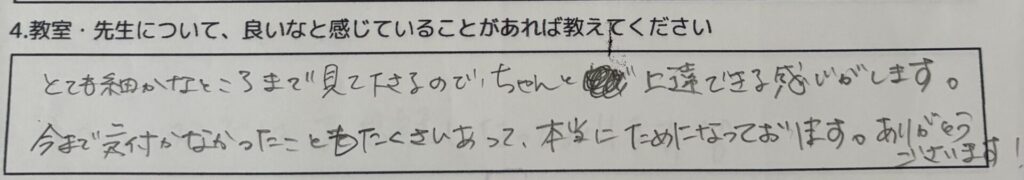 4.教室・先生について、良いなと感じていることがあれば教えてください
とても細かなところまで見て下さるので、ちゃんと上達できる感じがします。
今まで気付かなかったこともたくさんあって、本当にためになっております。ありがとう
ございます!